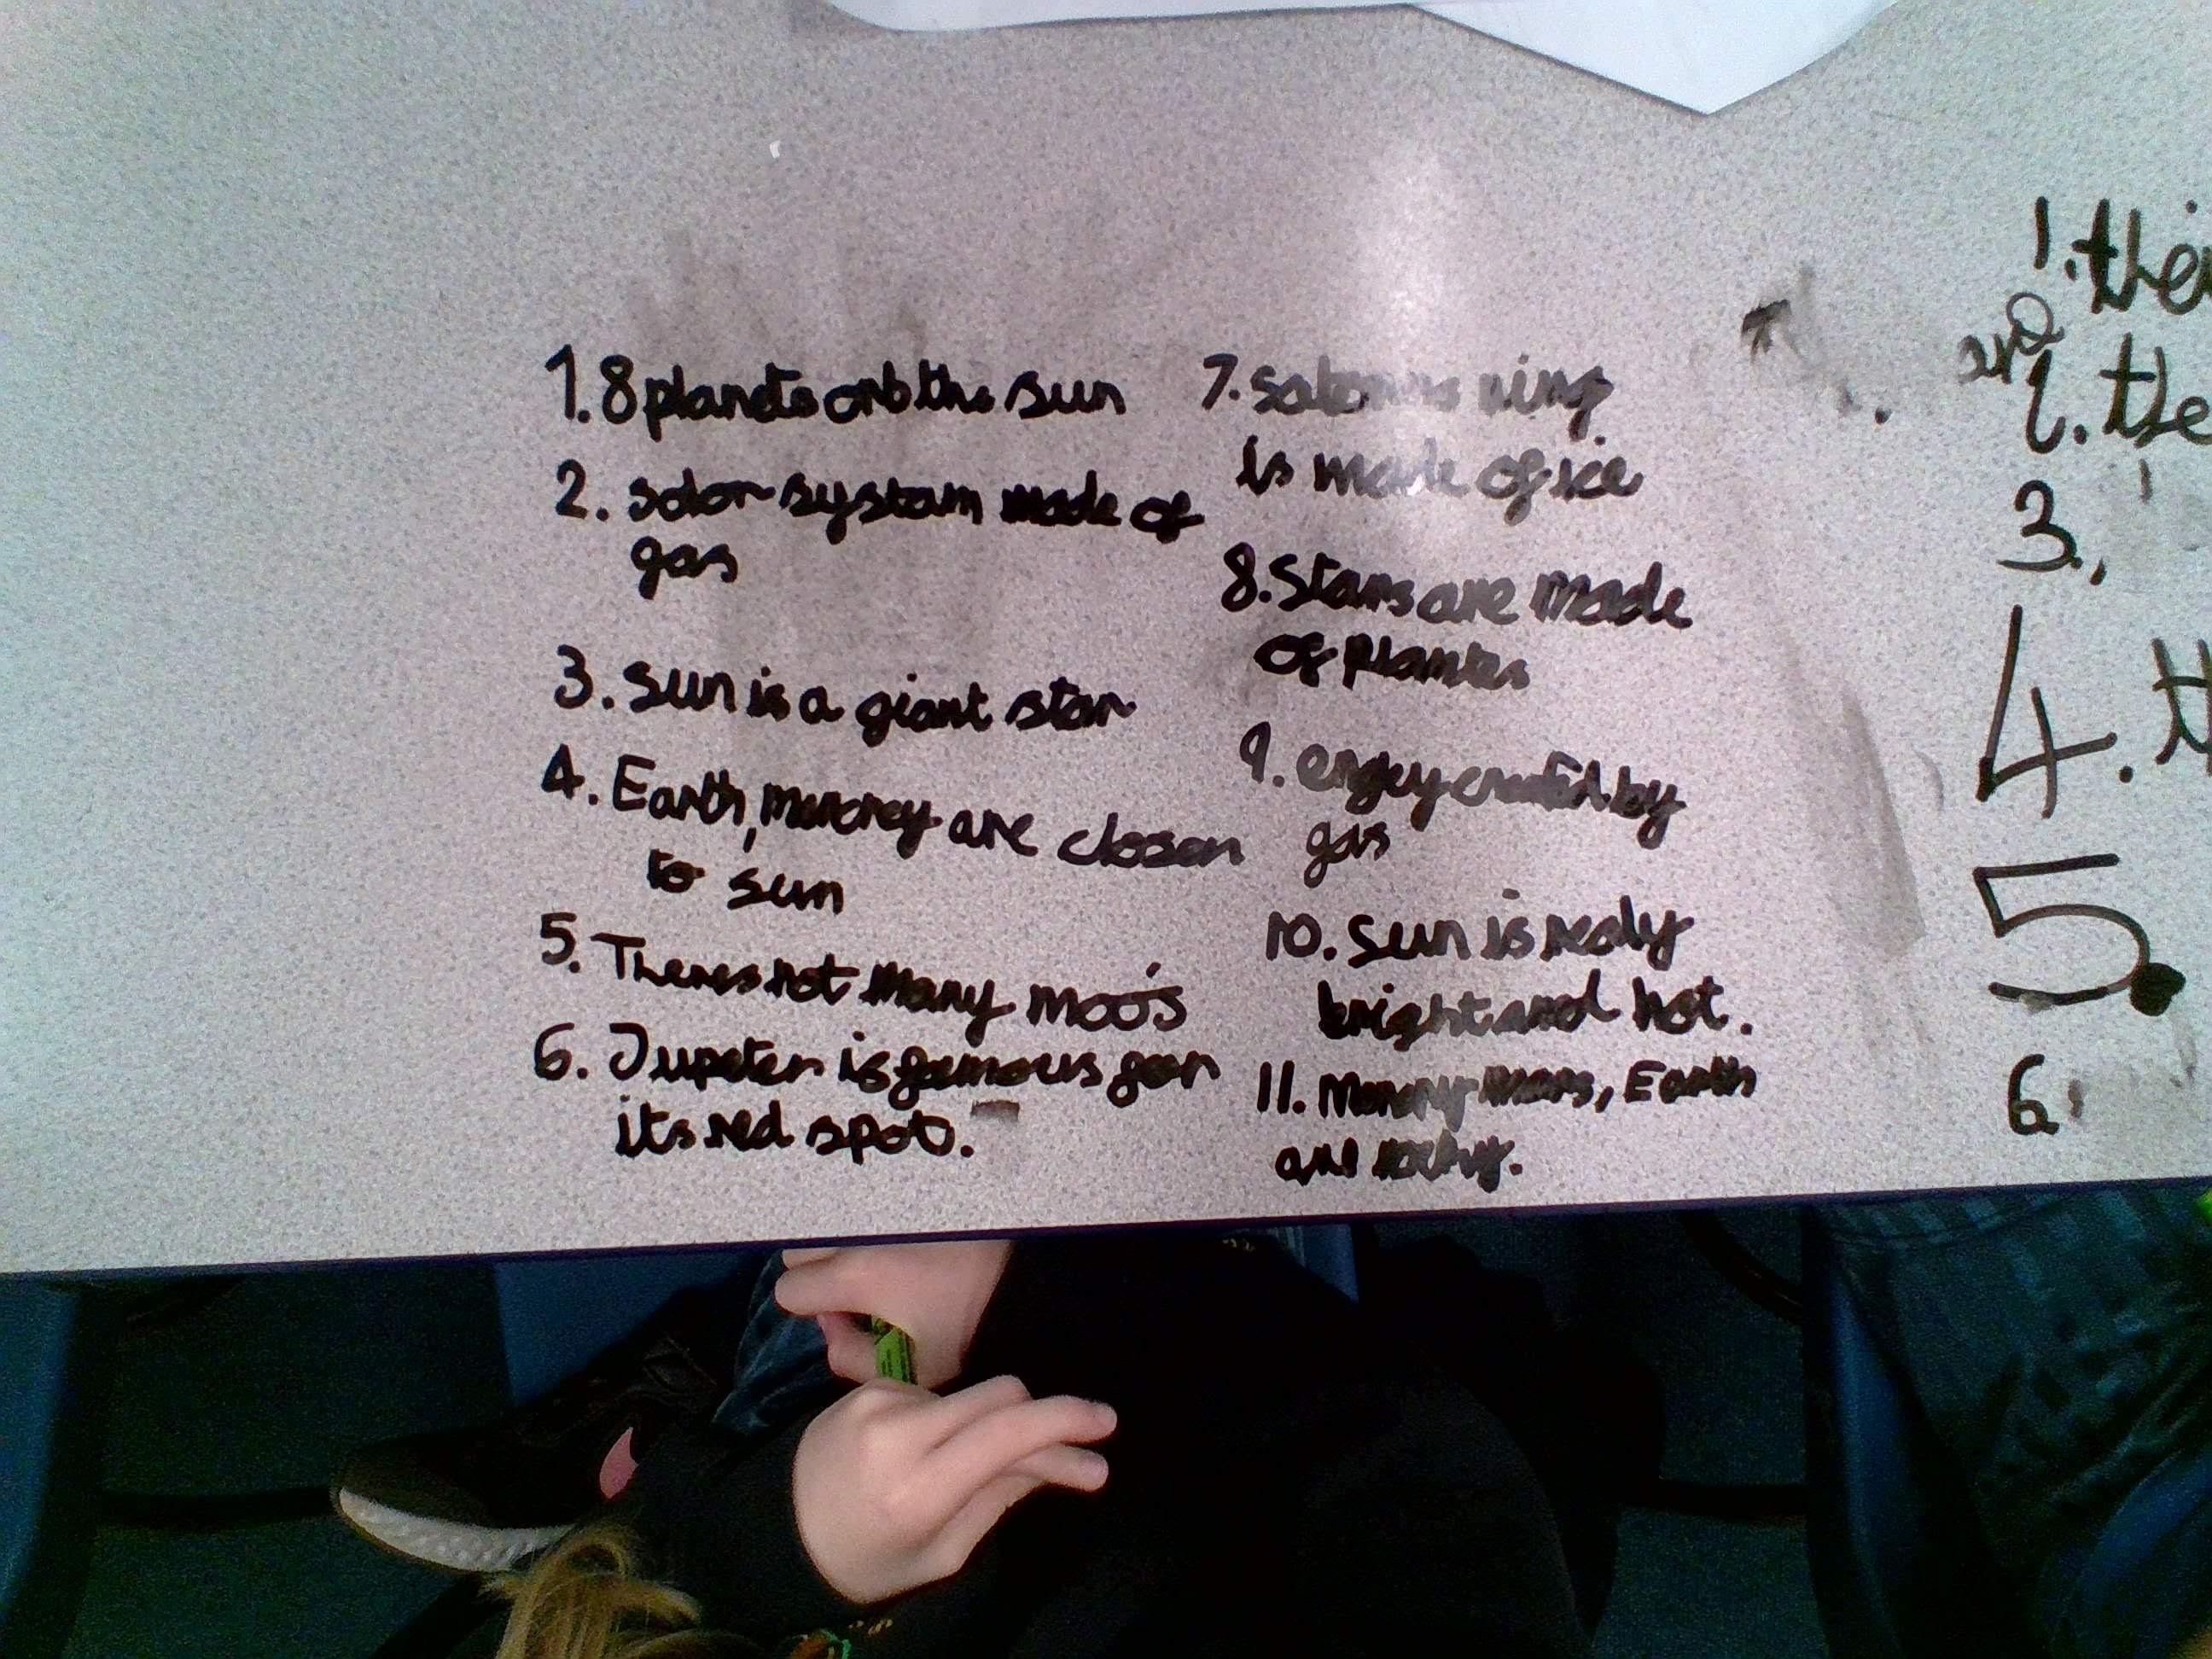 1. 8 planets orb the sun
2. solor system made of
gas
3. Sun is a giant star
4. Earth, mercrey are closer
to sun
5. Theres not many moo's
6. Jupeter is famous for
its red spot.
7. ring
is made of ice
8. Stars are made
of plantes
9. engey created by
gas
10. Sun is realy
bright and hot.
11. Mercry mars, Earth
are rocky.
1. the
are
2. the
3.
4. t
5.
6.